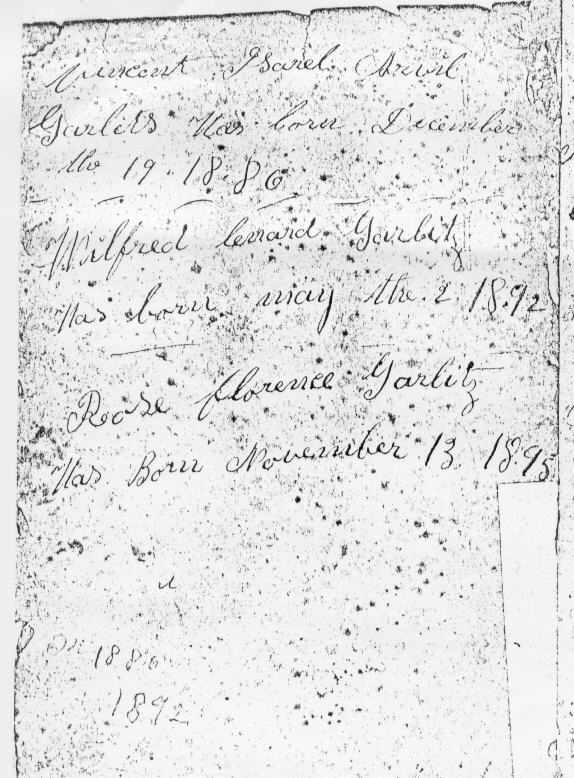 Vincent Isarel Arvil
Garlits Was born December
the 19 18.86
Wilfred lenard Garlitz
Was born may the 2 1892
Rose florence Garlitz
Was Born November 13 1895
1886
1892